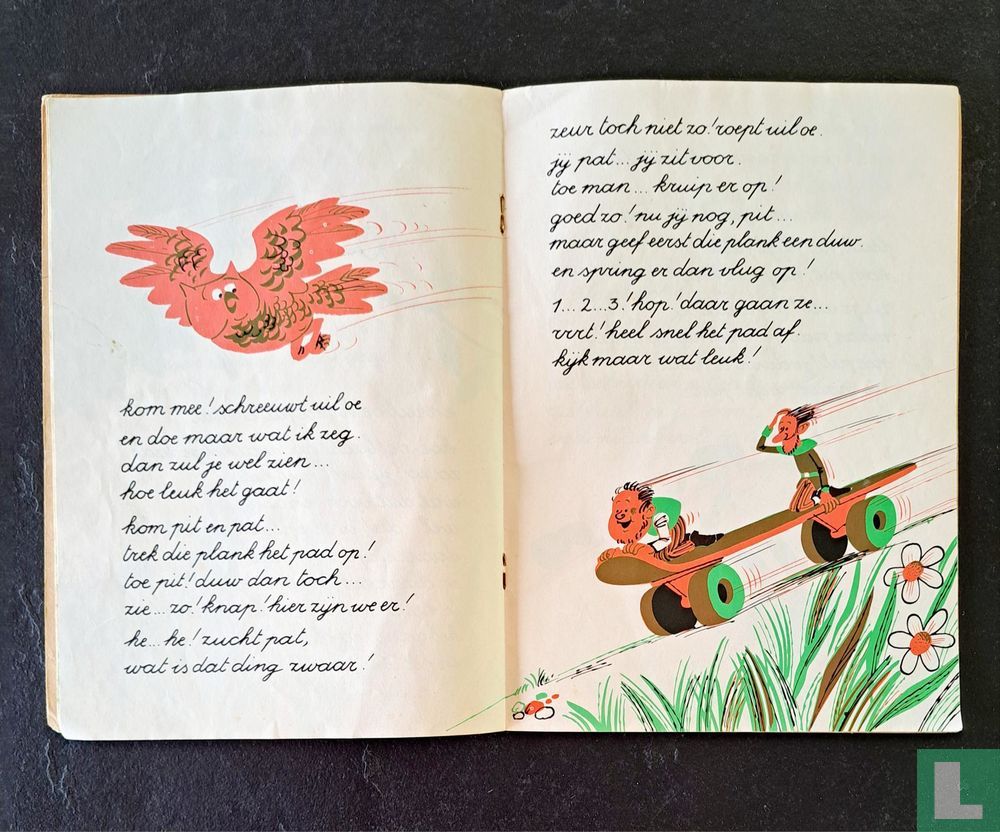 kom mee! schreeuwt uil oe
en doe maar wat ik zeg.
dan zul je wel zien...
hoe leuk het gaat!
kom pit en pat...
trek die plank het pad op!
toe pit! duw dan toch...
zie... zo! knap! hier zijn we er!
he... he! zucht pat,
wat is dat ding zwaar!
zeur toch niet zo! roept uil oe.
jij pat... jij zit voor.
toe man... kruip er op!
goed zo! nu jij nog, pit...
maar geef eerst die plank een duw.
en spring er dan vlug op!
1... 2... 3! hop! daar gaan ze...
rrrt! heel snel het pad af.
kijk maar wat leuk!
L